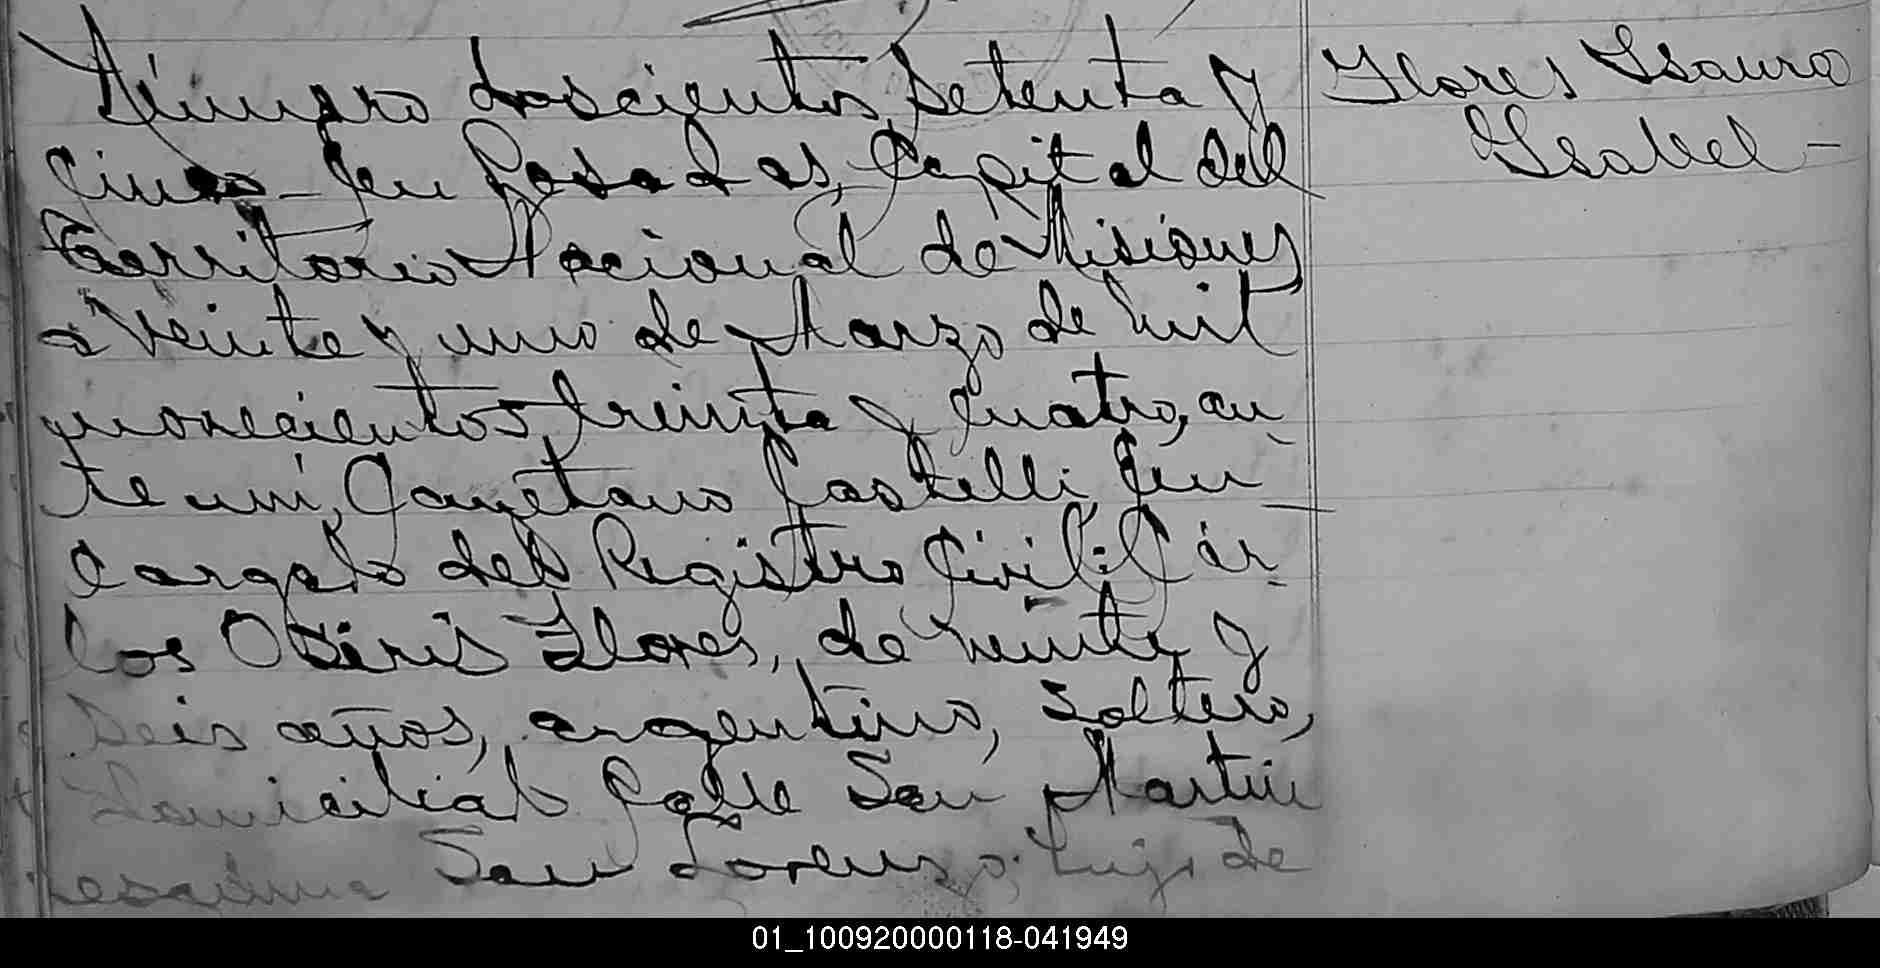 Número doscientos setenta y
cinco - En Posadas, Capital del
Territorio Nacional de Misiones
a veinte y uno de Marzo de mil
novecientos treinta y cuatro, an-
te mi, Cayetano Castelli, En-
cargado del Registro Civil: Cár-
los Osiris Flores, de veinte y
seis años, argentino, soltero,
domiciliado Calle San Martin
esquina San Lorenzo; hijo de
Flores Isaura
Isabel -
01_100920000118-041949